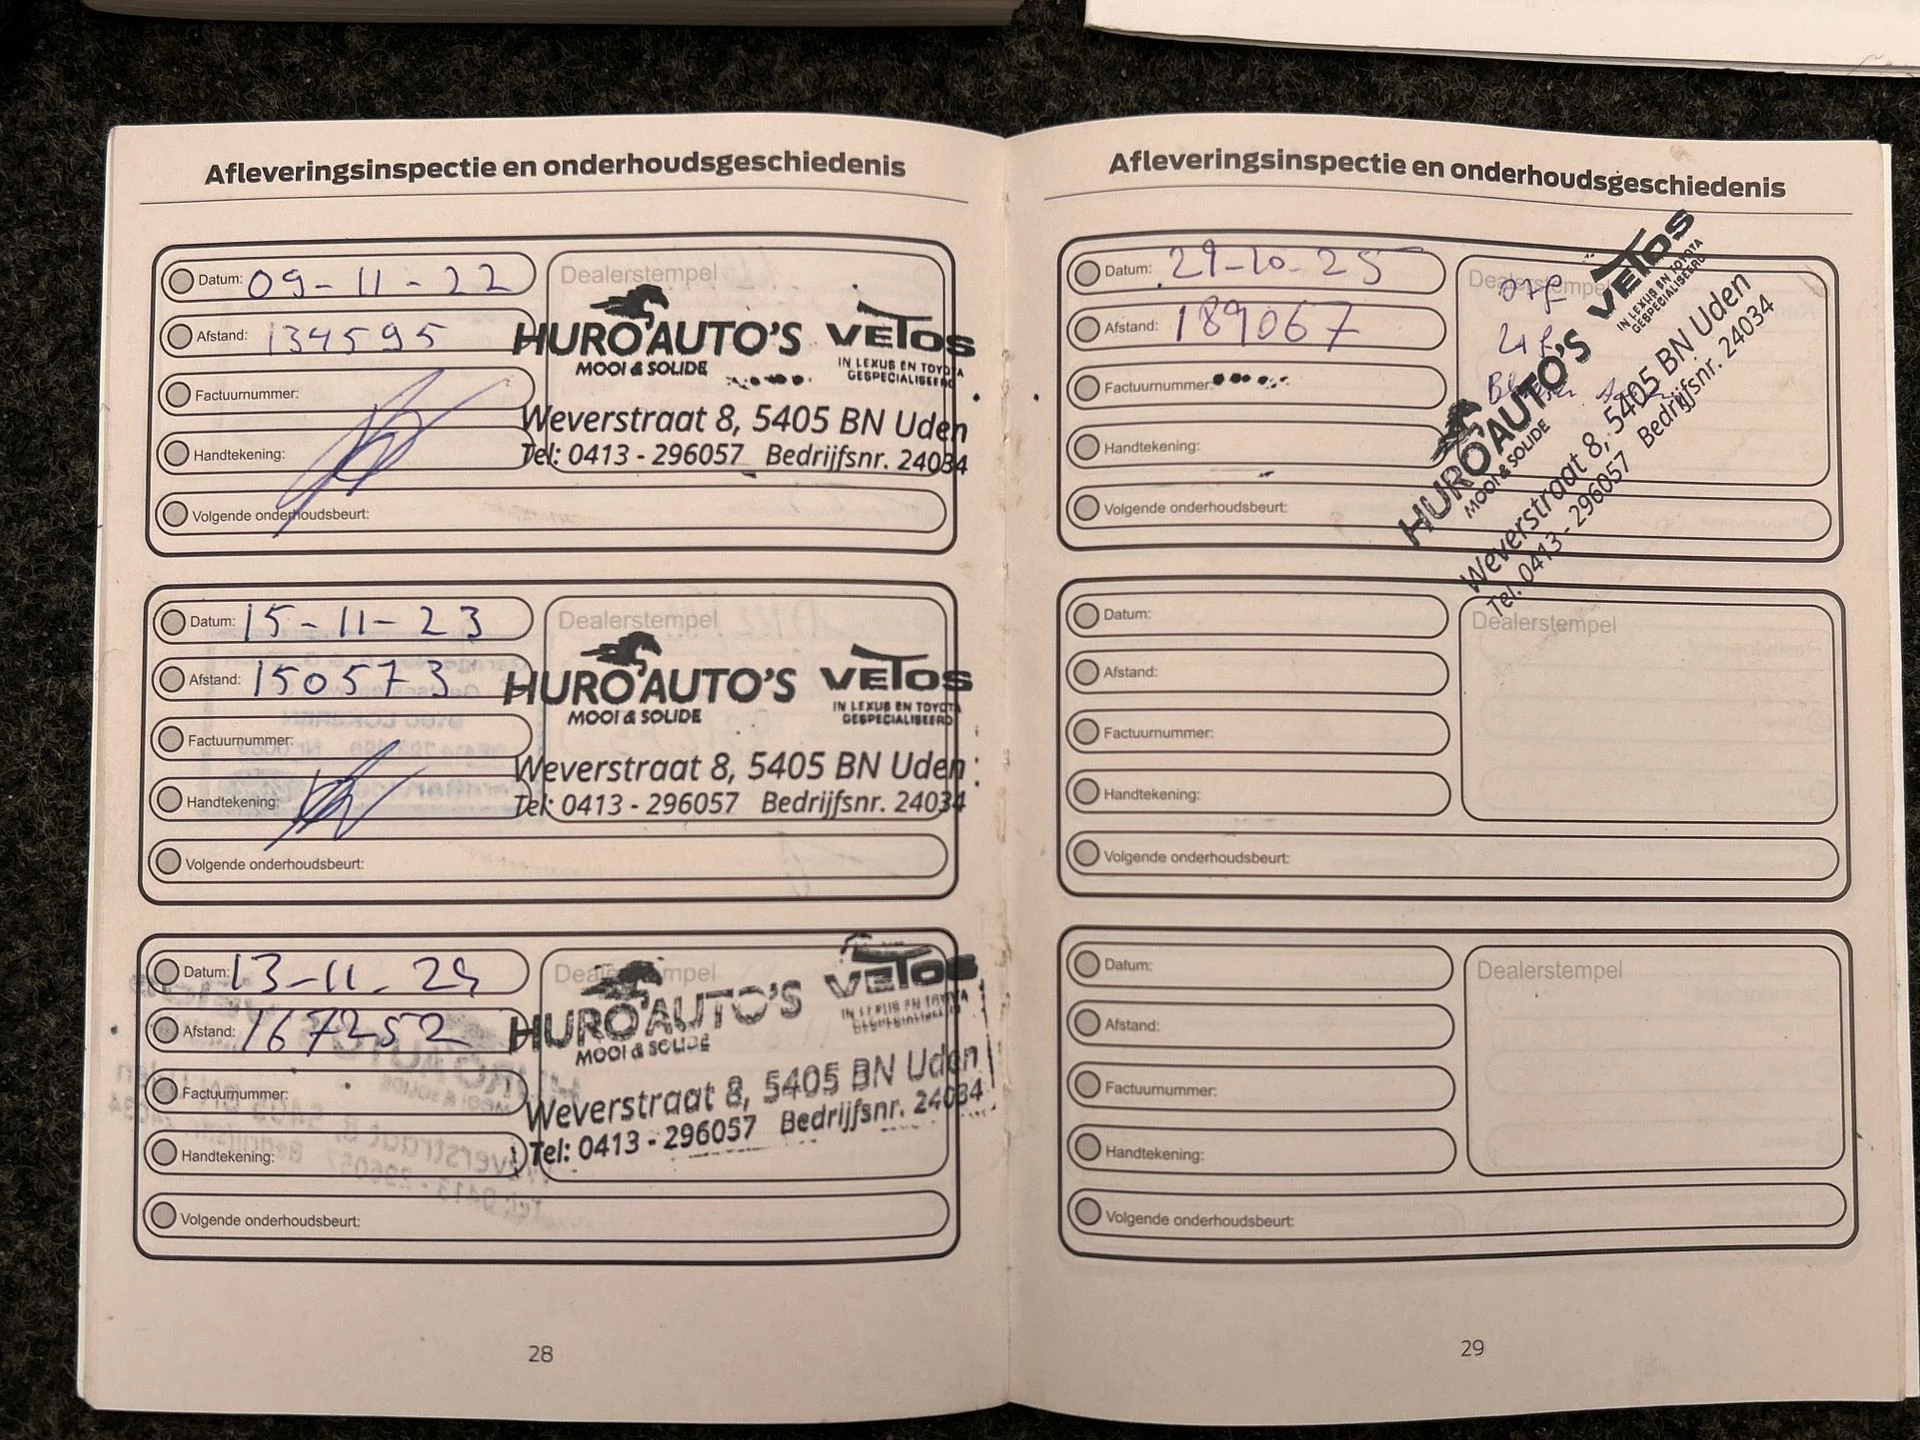 Afleveringsinspectie en onderhoudsgeschiedenis
Datum: 09-11-22
Afstand: 134595
Factuurnummer:
Handtekening:
Volgende onderhoudsbeurt:
Dealerstempel
HURO AUTO'S VETOS
MOOI & SOLIDE IN LEXUS EN TOYOTA
GESPECIALISEERD
Weverstraat 8, 5405 BN Uden
Tel: 0413 - 296057 Bedrijfsnr. 24034
Datum: 15-11-23
Afstand: 150573
Factuurnummer:
Handtekening:
Volgende onderhoudsbeurt:
Dealerstempel
HURO AUTO'S VETOS
MOOI & SOLIDE IN LEXUS EN TOYOTA
GESPECIALISEERD
Weverstraat 8, 5405 BN Uden
Tel: 0413 - 296057 Bedrijfsnr. 24034
Datum: 13-11-24
Afstand: 167252
Factuurnummer:
Handtekening:
Volgende onderhoudsbeurt:
Dealerstempel
HURO AUTO'S VETOS
MOOI & SOLIDE IN LEXUS EN TOYOTA
GESPECIALISEERD
Weverstraat 8, 5405 BN Uden
Tel: 0413 - 296057 Bedrijfsnr. 24034
28
Afleveringsinspectie en onderhoudsgeschiedenis
Datum: 29-10-25
Afstand: 189067
Factuurnummer:
Handtekening:
Volgende onderhoudsbeurt:
Dealerstempel
HURO AUTO'S VETOS
MOOI & SOLIDE IN LEXUS EN TOYOTA
GESPECIALISEERD
Weverstraat 8, 5405 BN Uden
Tel: 0413 - 296057 Bedrijfsnr. 24034
Datum:
Afstand:
Factuurnummer:
Handtekening:
Volgende onderhoudsbeurt:
Dealerstempel
Datum:
Afstand:
Factuurnummer:
Handtekening:
Volgende onderhoudsbeurt:
Dealerstempel
29